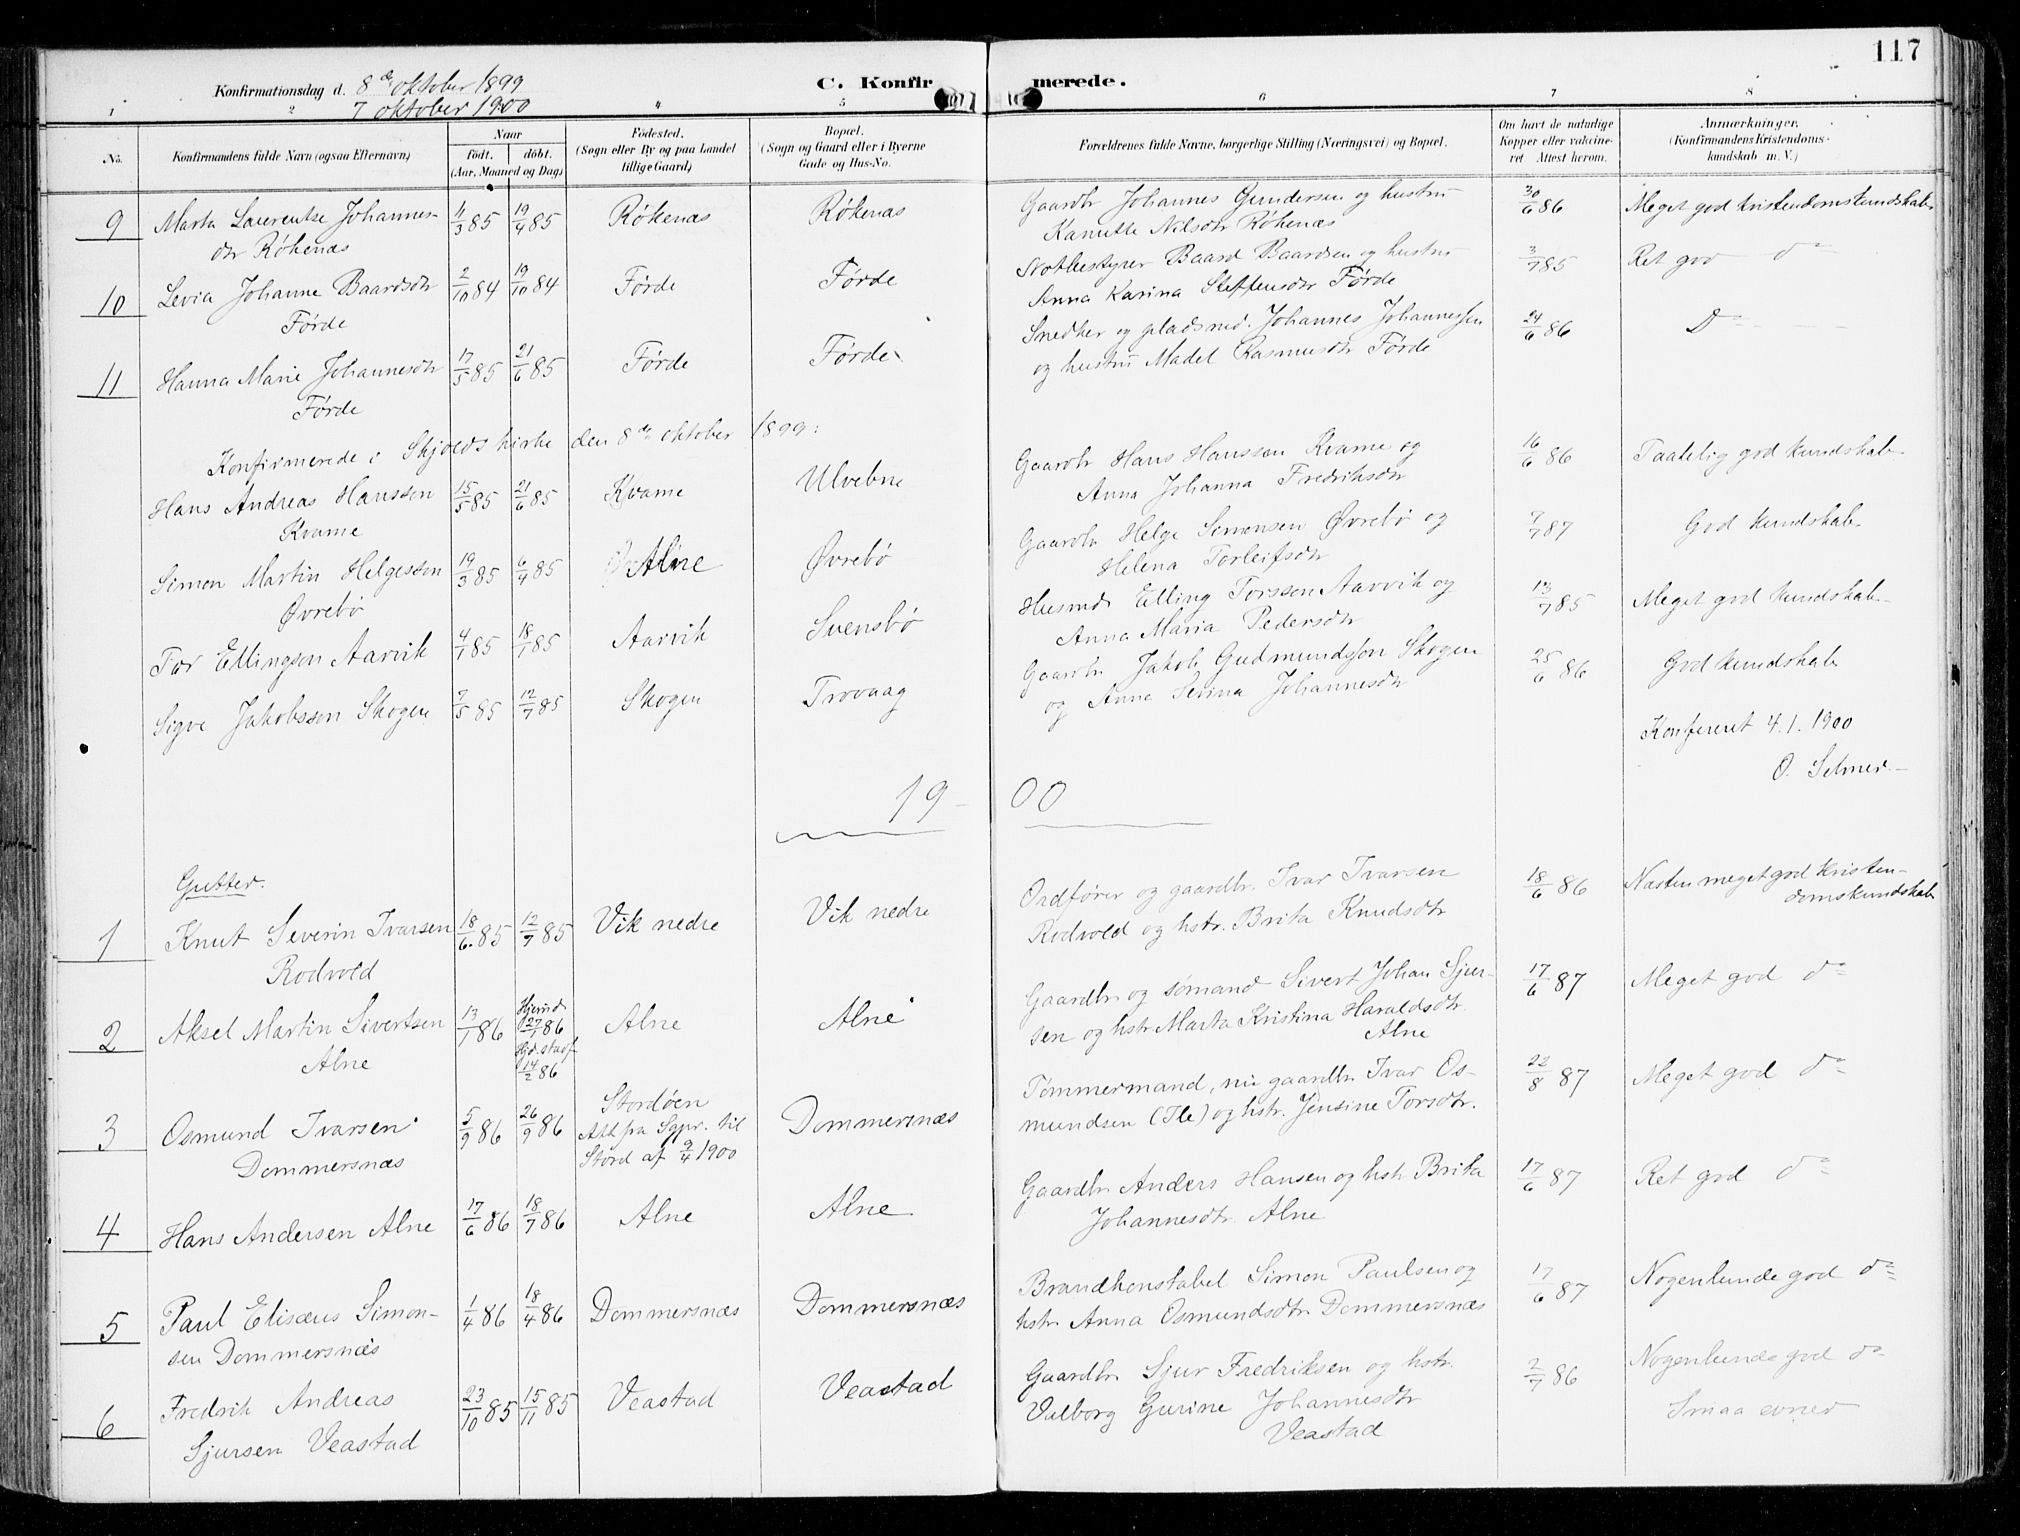 117
Konfirmationsdag d. 8de oktober 1899
7 oktober 1900
C. Konfirmerede.
1 2 4 5 6 7 8
No. Konfirmandens fulde Navn (ogsaa Efternavn) Naar født. døbt. (Aar, Maaned og Dag) Fødested. (Sogn eller By og paa Landet tillige Gaard) Bopæl. (Sogn og Gaard eller i Byerne Gade og Hus-No. Forældrenes fulde Navne, borgerlige Stilling (Næringsvei) og Bopæl. Om havt de naturlige Kopper eller vaccineret. Attest herom. Anmærkninger. (Konfirmandens Kristendomskundskab m. V.)
9 Marta Laurentse Johannes- 11/3 85 19/4 85 Røkenæs Røkenæs Gaardbr Johannes Gundersen og hustru 30/6 86 Meget god kristendomskundskab
dtr Røkenæs Kanutte Nilsdtr Røkenæs
10 Levia Johanne Baardsdtr 2/10 84 19/10 84 Førde Førde Notbestyrer Baard Baardsen og hustru 3/7 85 Ret god do
Førde Anna Karina Steffensdtr Førde
11 Hanna Marie Johannesdtr 17/5 85 21/6 85 Førde Førde Snedker og pladsmd. Johannes Johannessen 24/6 86 Do
Førde og hustru Madel Rasmusdtr Førde
Konfirmerede i Skjolds kirke den 8de oktober 1899:
Hans Andreas Hansson 15/5 85 21/6 85 Kvame Ulvebne Gaardbr Hans Hanssen Kvame og 16/6 86 Taalelig god kundskab
Kvame Anna Johanna Fredriksdtr
Simon Martin Helgesson 19/3 85 6/4 85 Alne Øvrebø Gaardbr Helge Simonsen Øvrebø og 7/7 87 God kundskab
Øvrebø Helena Torleifsdtr
Tor Ellingson Aarvik 4/1 85 18/1 85 Aarvik Svensbø Husmd Elling Torsson Aarvik og 13/7 85 Meget god kundskab
Anna Maria Pedersdtr
Sigve Jakobsson Skogen 7/5 85 12/7 85 Skogen Trovaag Gaardbr Jakob Gudmundsson Skogen 25/6 86 God kundskab
og Anne Serina Johannesdtr
Konfereret 4.1.1900
O. Selmer
1900
Gutter.
1 Knut Severin Ivarsen 18/6 85 12/7 85 Vik nedre Vik nedre Ordfører og gaardbr. Ivar Ivarsen 18/6 86 Næsten meget god kristen-
Rodvold Rodvold og hstr. Brita Knudsdtr domskundskab
2 Aksel Martin Sivertsen 13/1 86 Hjemd. 27/1 86 Alne Alne Gaardbr og sømand Sivert Johan Sjur- 17/6 87 Meget god do
Alne Hjd. stadf. 14/2 86 sen og hstr Marta Kristina Haraldsdtr.
Alne
3 Osmund Ivarsen 5/9 86 26/9 86 Stordøen Dommersnæs Tømmermand, nu gaardbr. Ivar Os- 22/8 87 Meget god do
Dommersnæs Att fra Sgpr. til mundsen (Tle) og hstr. Jensine Torsdtr.
Stord af 9/4 1900
4 Hans Andersen Alne 17/6 86 18/7 86 Alne Alne Gaardbr Anders Hansen og hstr Brita 17/6 87 Ret god do
Johannesdtr. Alne
5 Paul Elisæus Simon- 1/4 86 18/4 86 Dommersnæs Dommersnæs Brandkonstabel Simon Paulsen og 17/6 87 Nogenlunde god do
sen Dommersnæs hstr Anna Osmundsdtr Dommersnæs
6 Fredrik Andreas 23/10 85 15/11 85 Veastad Veastad Gaardbr Sjur Fredriksen og hstr. 2/7 86 Nogenlunde god do
Sjursen Veastad Valborg Gurine Johannesdtr Smaa evner
Veastad